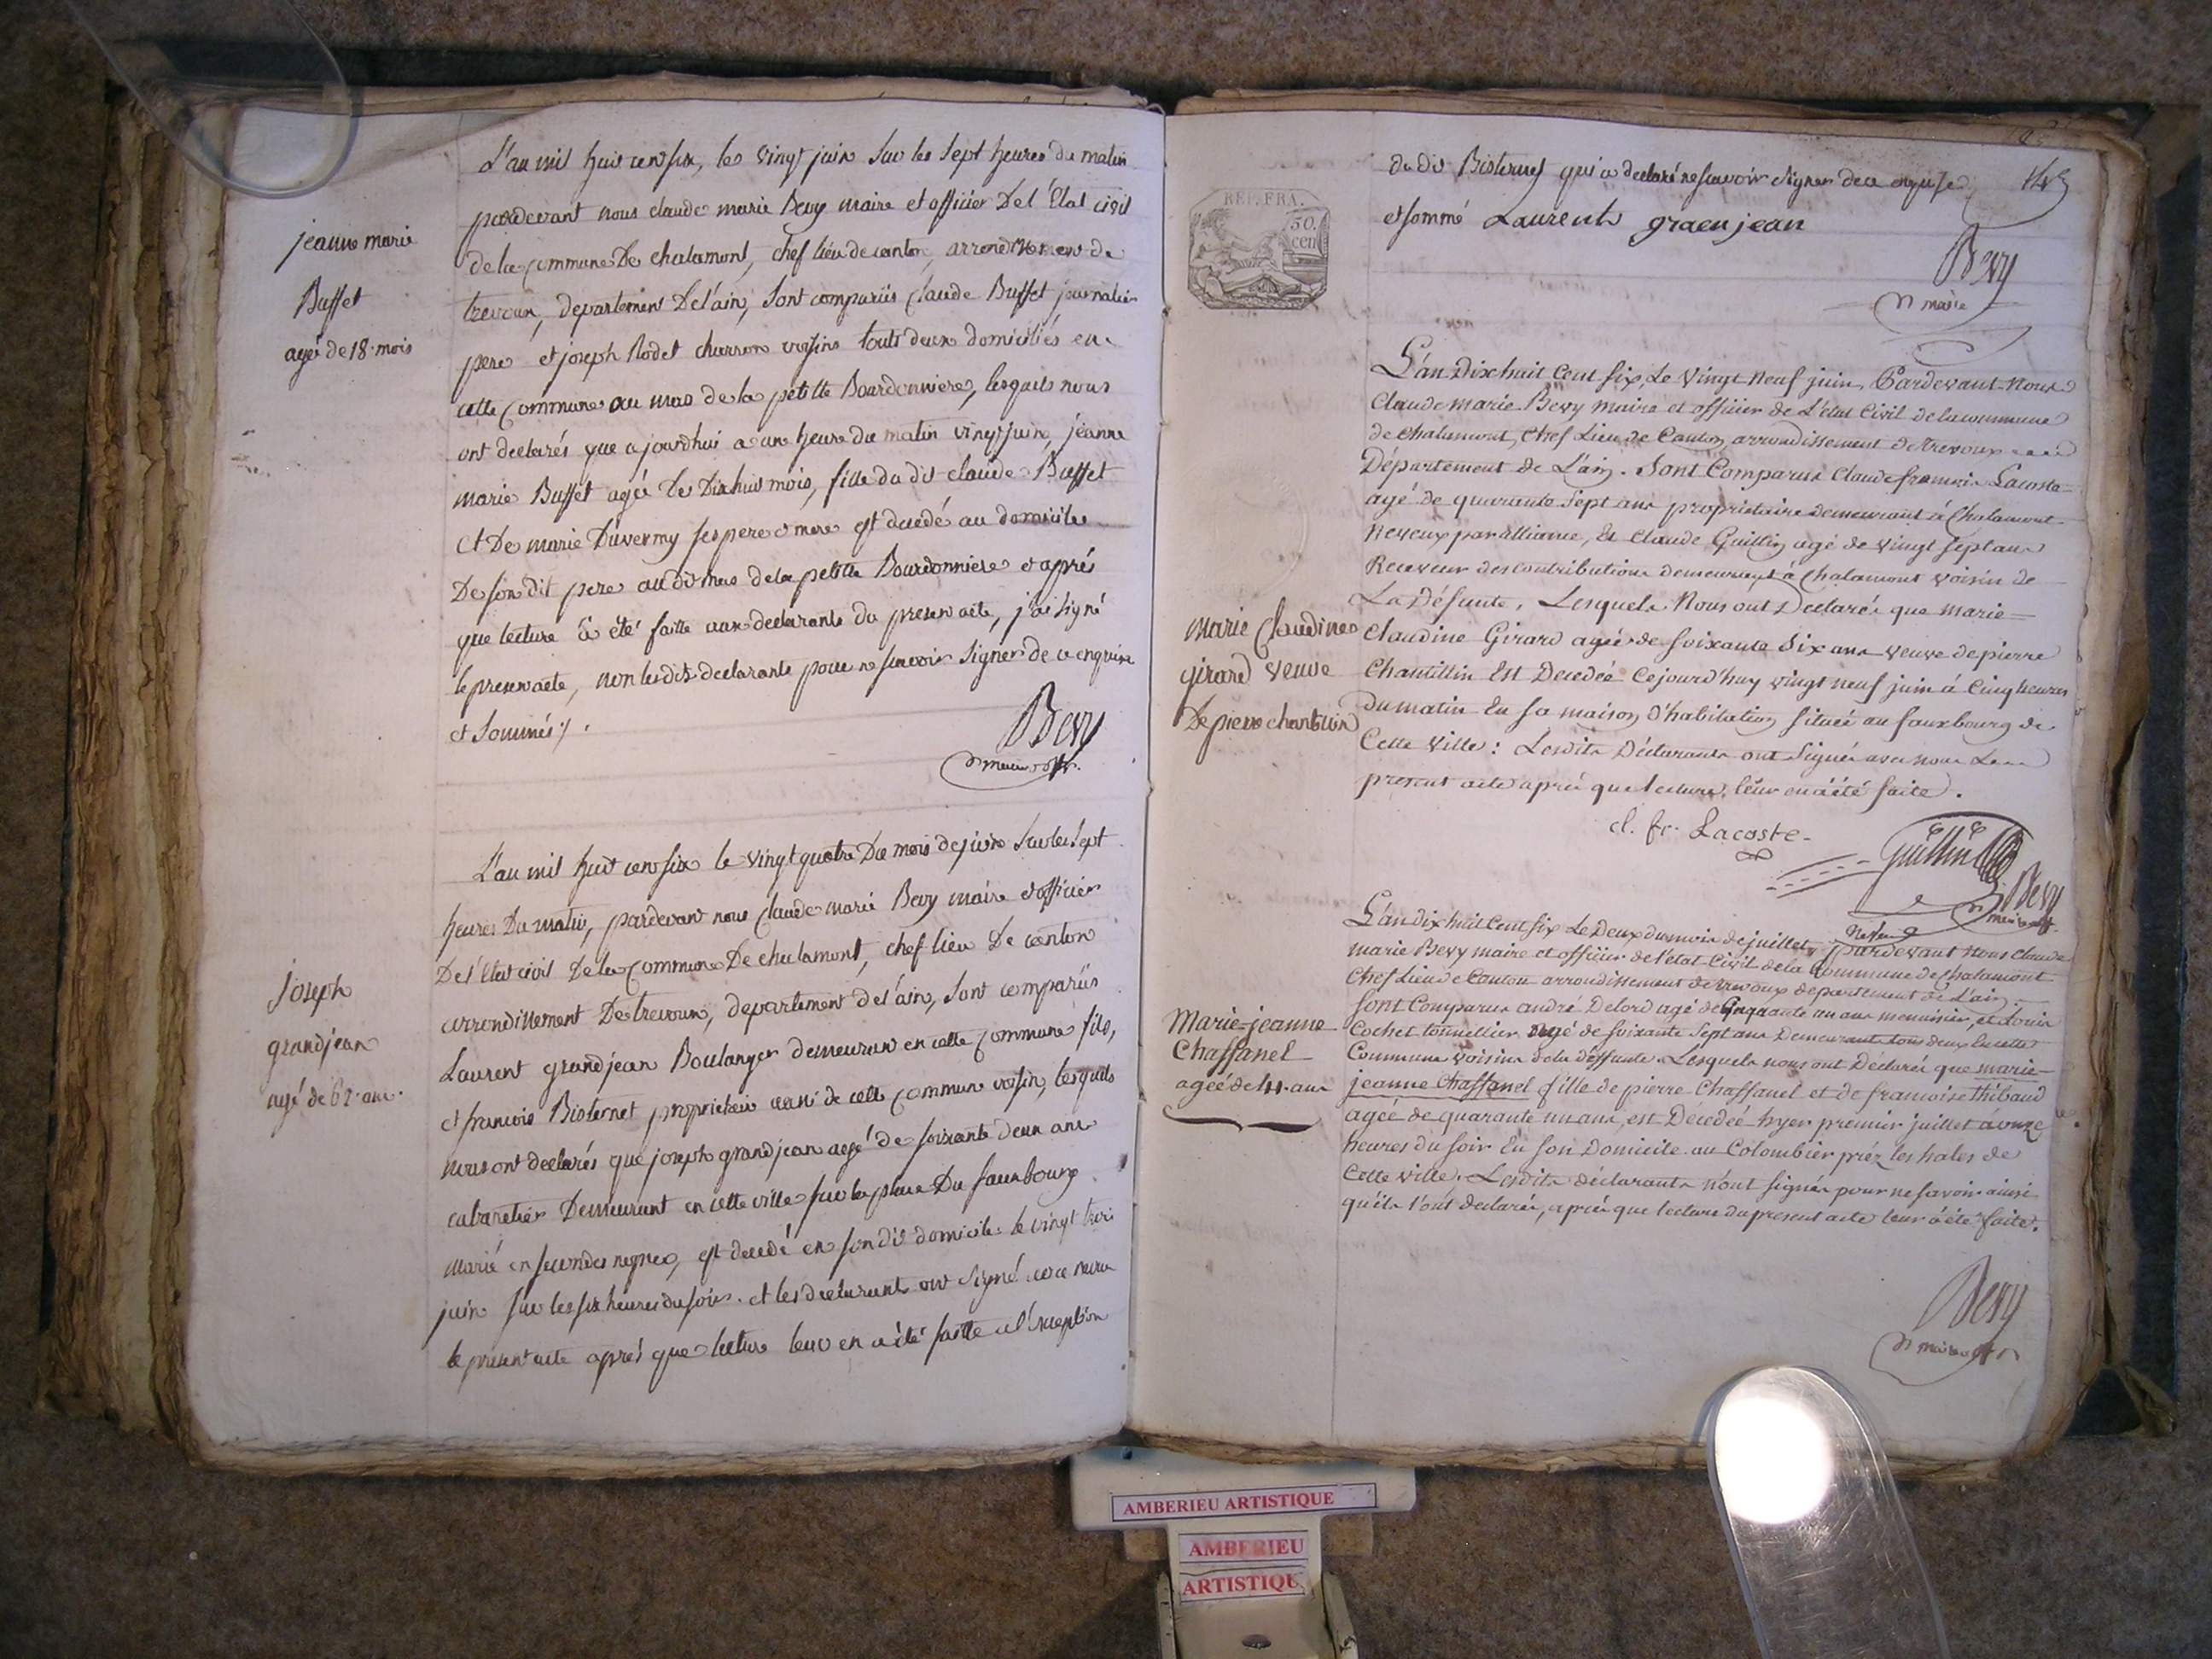 jeanne marie
Buffet
agée de 18 mois
L'an mil huit cent six, les vingt juin sur les sept heures du matin
pardevant nous claude marie Bevy maire et officier De l'État civil
de la commune De chalamont, chef lieu de canton, arrondissement de
trevoux, departement De l'ain, sont comparüs claude Buffet journalier
pere et joseph Rodet charron voisins touts deux domiciliés en
cette commune au mas de la petitte Bourdonniere, lesquels nous
ont declarés que ajourdhui a une heure du matin vingt juin, jeanne
marie Buffet agée de Dix huit mois, fille du dit claude Buffet
et De marie Duvermy ses pere & mere est decedé au domicile
De son dit pere au dit mas de la petitte Bourdonniere et aprés
que lecture a été faitte aux declarants du present acte, j'ai signé
le present acte, non lesdits declarants pour ne scavoir signer de ce enquise
et sommés /.
Bevy
joseph
grandjean
agé de 62 ans.
L'an mil huit cent six le vingt quatre Du mois de juin sur les sept
heures Du matin, pardevant nous claude marie Bevy maire et officier
De l'Etat civil De la commune De chalamont, chef lieu De canton
arrondissement De trevoux, departement de l'ain, sont comparüs
Laurent grandjean Boulanger demeurant en cette commune fils,
et francois Bisternet proprietaire aussi de cette commune voisin, lesquels
nous ont declarés que joseph grandjean agé de soixante deux ans
cabaretier Demeurant en cette ville sur la place Du fauxbourg
marié en secondes nopces, est decedé en son dit domicile le vingt trois
juin sur les six heures du soir. et les declarants ont signé avec nous
le present acte aprés que lecture leur en a été faitte a l'exception
du dit Bisternet qui a declaré ne scavoir signer de ce enquise
et sommé Laurent graenjean
Bevy
maire
REP. FRA.
50.
cen
marie Claudine
girard veuve
De pierre chantillin
L'an Dix huit Cent six, Le Vingt Neuf juin, Pardevant Nous
Claude marie Bevy maire et officier de L'état Civil de la commune
de chalamont, chef Lieu de Canton arrondissement de trevoux
Département de L'ain. Sont Comparus Claude francois Lacoste
agé de quarante Sept ans propriétaire demeurant à Chalamont
Neveux par alliance, Et Claude Guillin agé de vingt sept ans
Receveur des contributions demeurant à Chalamont voisin de
La Défunte, Lesquels Nous ont Déclarés que marie
Claudine Girard agée de soixante Six ans veuve de pierre
Chantillin Est Decedée Cejourd'huy vingt neuf juin à Cinq heures
du matin En sa maison D'habitation située au fauxbourg de
Cette Ville: Lesdits Déclarants ont signés avec nous Le
present acte aprés que lecture leur en a été faite.
cl. fr. Lacoste
Guillin
Bevy
Marie-jeanne
Chaffanel
ageé de 41. ans
L'an dix huit Cent six Le Deux du mois de juillet, pardevant Nous Claude
marie Bevy maire et officier de l'état Civil de la Commune de Chalamont
Chef Lieu de Canton arrondissement de trevoux departement de L'ain
sont Comparus andré Delord agé de Cinquante un ans menuisier, et Louis
Cochet tonnellier agé de soixante sept ans Demeurants tous deux En cette
Commune voisins de la deffunte. Lesquels nous ont Déclarés que marie
jeanne Chaffanel fille de pierre Chaffanel et de francoise Thibaud
ageé de quarante un ans, est Decedeé hyer premier juillet à onze
heures du soir En son Domicile au Colombier préz les hales de
Cette Ville. Lesdits déclarants n'ont signés pour ne savoir ainsi
qu'ils l'ont declarés, aprés que lecture du present acte leur à été faite.
Bevy
AMBERIEU ARTISTIQUE
AMBERIEU
ARTISTIQUE